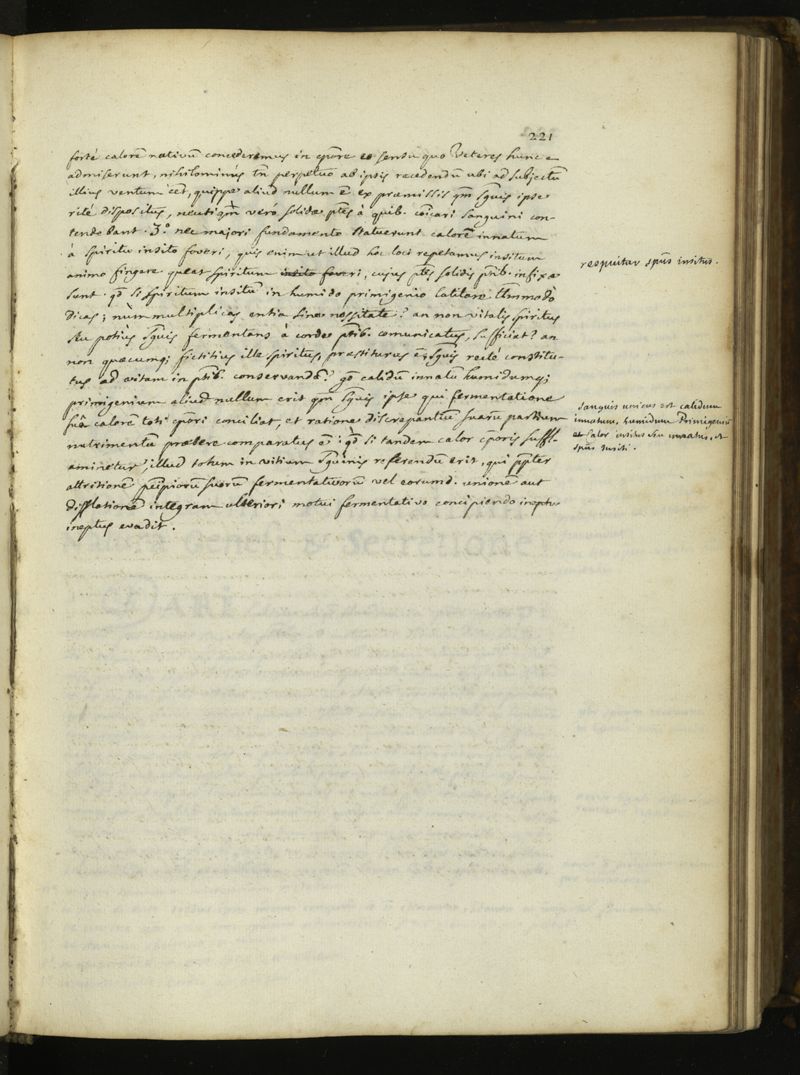 221
forté calorē nativū concederemus in cp̄ore eo sensu quo Veteres hunc
admiserunt, nihilominùs tn̄ perpetuo ab ipsis recedendū ubi ad subjectū
illius ventum eēt, quippe aliud nullum ē ex præmissis qm̄ sḡuis ipse
ritè dispositus, neutiqm̄ verò solidæ ptēs à quib. cōicari sanguini con-
tendebant. 3.º nec majori fundamento statuerunt calorē innatum
à spiritu insito foveri, quis enim ut illud hoc loci repetamus insitum
animo fingere queat spiritum insito foveri, cujus ptēs solidis ptib. infixæ
sunt. qd̄ si spiritum insitū in humido primigenio latitare
dicas; nùm multiplicas entia sine necssitate? an non vitalis spiritus
seu potiùs sḡuis fermentans à corde ptib. communicatus, sufficiat? an
non quæcumq; fictitius ille spiritus, præstiturus ēt, sḡuis rectè constitu-
tus ad vitam in ptib. conservandā? gō calidū innatū humidumq;
primigenium aliud nullum erit qm̄ sḡuis ipse qui fermentatione
suâ calorem toti cp̄ori conciliat, et ratione discrepantiū suarū partium
nutrimentū præbere comparatus ē: qd̄ si tandem calor cp̄oris suffl-
aminetur illud totum in vitium sḡuinis referendū erit, qui pp̄ter
attritionē pn̄cipiorū suorū fermentativorū vel eorumd. unionē aut
difflationē integram ulteriori motui fermentativo concipiendo
ineptus evadit.
respuitur sp̄us insitus.
Sanguis unicus est calidum
innatum, humidum Primigeniū
et calor insitus seu innatus, et
sp̄us insiti.